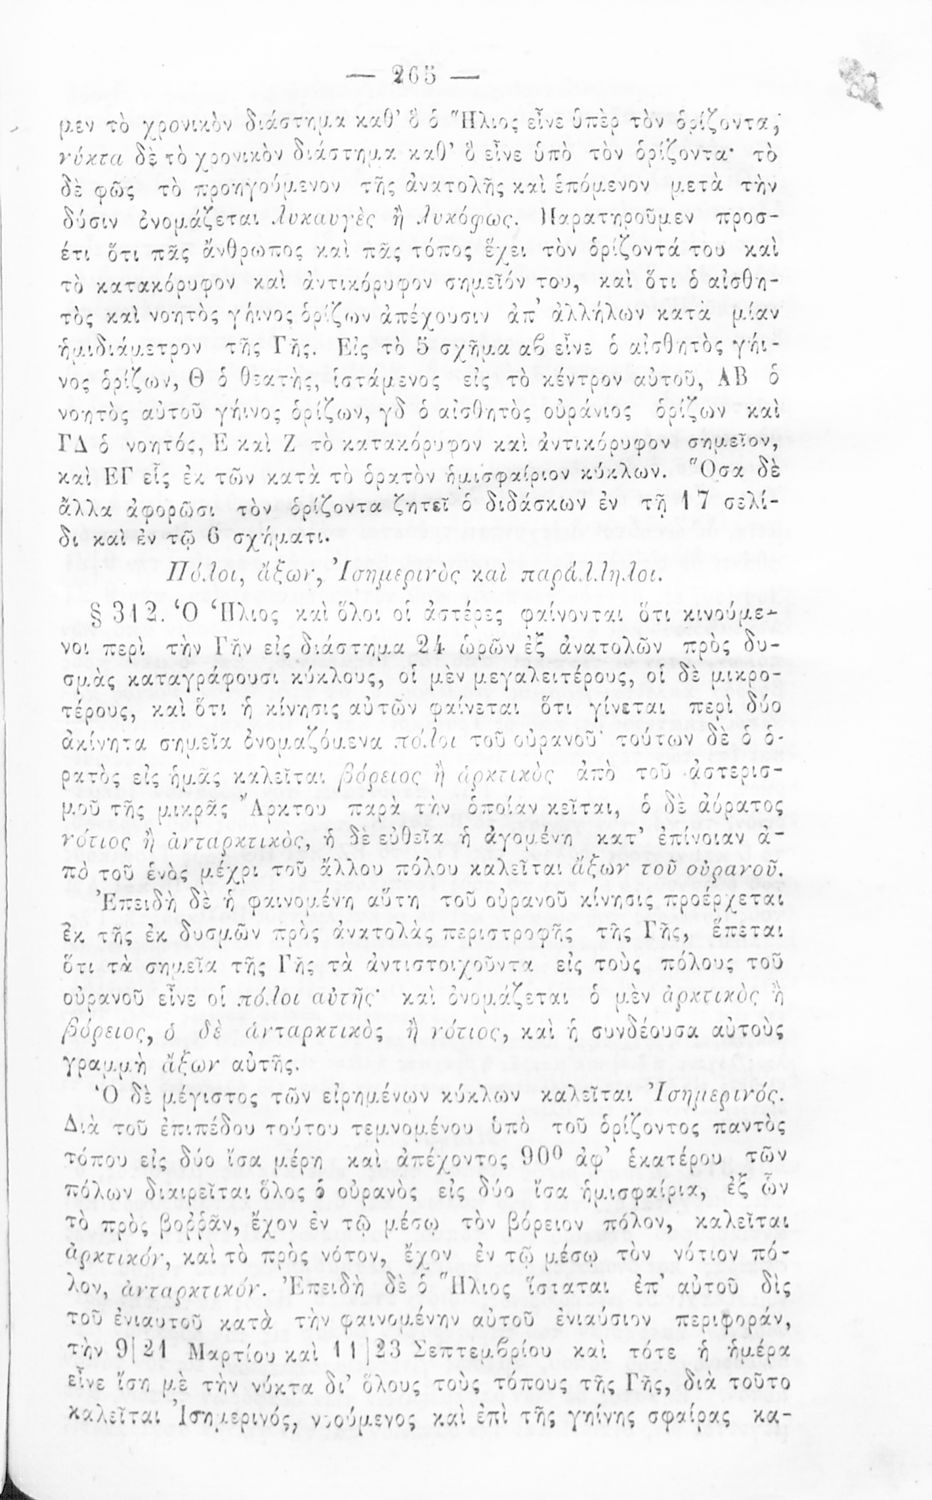 — 265 —
μεν τὸ χρονικὸν διάστημα καθ' ὃ ὁ Ἥλιος εἶνε ὑπὲρ τὸν ὁρίζοντα,
νύκτα δὲ τὸ χρονικὸν διάστημα καθ' ὃ εἶνε ὑπὸ τὸν ὁρίζοντα· τὸ
δὲ φῶς τὸ προηγούμενον τῆς ἀνατολῆς καὶ ἑπόμενον μετὰ τὴν
δύσιν ὀνομάζεται Λυκαυγὲς ἢ Λυκόφως. Παρατηροῦμεν προσ-
έτι ὅτι πᾶς ἄνθρωπος καὶ πᾶς τόπος ἔχει τὸν ὁρίζοντά του καὶ
τὸ κατακόρυφον καὶ ἀντικόρυφον σημεῖόν του, καὶ ὅτι ὁ αἰσθη-
τὸς καὶ νοητὸς γήινος ὁρίζων ἀπέχουσιν ἀπ' ἀλλήλων κατὰ μίαν
ἡμιδιάμετρον τῆς Γῆς. Εἰς τὸ 5 σχῆμα αβ εἶνε ὁ αἰσθητὸς γήι-
νος ὁρίζων, Θ ὁ θεατὴς, ἱστάμενος εἰς τὸ κέντρον αὐτοῦ, ΑΒ ὁ
νοητὸς αὐτοῦ γήινος ὁρίζων, γδ ὁ αἰσθητὸς οὐράνιος ὁρίζων καὶ
ΓΔ ὁ νοητός, Ε καὶ Ζ τὸ κατακόρυφον καὶ ἀντικόρυφον σημεῖον,
καὶ ΕΓ εἷς ἐκ τῶν κατὰ τὸ ὁρατὸν ἡμισφαίριον κύκλων. Ὅσα δὲ
ἄλλα ἀφορῶσι τὸν ὁρίζοντα ζητεῖ ὁ διδάσκων ἐν τῇ 17 σελί-
δι καὶ ἐν τῷ 6 σχήματι.
Πόλοι, ἄξων, Ἰσημερινὸς καὶ παράλληλοι.
§ 312. Ὁ Ἥλιος καὶ ὅλοι οἱ ἀστέρες φαίνονται ὅτι κινούμε-
νοι περὶ τὴν Γῆν εἰς διάστημα 24 ὡρῶν ἐξ ἀνατολῶν πρὸς δυ-
σμὰς καταγράφουσι κύκλους, οἱ μὲν μεγαλειτέρους, οἱ δὲ μικρο-
τέρους, καὶ ὅτι ἡ κίνησις αὐτῶν φαίνεται ὅτι γίνεται περὶ δύο
ἀκίνητα σημεῖα ὀνομαζόμενα πόλοι τοῦ οὐρανοῦ· τούτων δὲ ὁ ὁ-
ρατὸς εἰς ἡμᾶς καλεῖται βόρειος ἢ ἀρκτικὸς ἀπὸ τοῦ ἀστερισ-
μοῦ τῆς μικρᾶς Ἄρκτου παρὰ τὴν ὁποίαν κεῖται, ὁ δὲ ἀόρατος
νότιος ἢ ἀνταρκτικὸς, ἡ δὲ εὐθεῖα ἡ ἀγομένη κατ' ἐπίνοιαν ἀ-
πὸ τοῦ ἑνὸς μέχρι τοῦ ἄλλου πόλου καλεῖται ἄξων τοῦ οὐρανοῦ.
Ἐπειδὴ δὲ ἡ φαινομένη αὕτη τοῦ οὐρανοῦ κίνησις προέρχεται
ἐκ τῆς ἐκ δυσμῶν πρὸς ἀνατολὰς περιστροφῆς τῆς Γῆς, ἕπεται
ὅτι τὰ σημεῖα τῆς Γῆς τὰ ἀντιστοιχοῦντα εἰς τοὺς πόλους τοῦ
οὐρανοῦ εἶνε οἱ πόλοι αὐτῆς· καὶ ὀνομάζεται ὁ μὲν ἀρκτικὸς ἢ
βόρειος, ὁ δὲ ἀνταρκτικὸς ἢ νότιος, καὶ ἡ συνδέουσα αὐτοὺς
γραμμὴ ἄξων αὐτῆς.
Ὁ δὲ μέγιστος τῶν εἰρημένων κύκλων καλεῖται Ἰσημερινός.
Διὰ τοῦ ἐπιπέδου τούτου τεμνομένου ὑπὸ τοῦ ὁρίζοντος παντὸς
τόπου εἰς δύο ἴσα μέρη καὶ ἀπέχοντος 90⁰ ἀφ' ἑκατέρου τῶν
πόλων διαιρεῖται ὅλος ὁ οὐρανὸς εἰς δύο ἴσα ἡμισφαίρια, ἐξ ὧν
τὸ πρὸς βοῤῥᾶν, ἔχον ἐν τῷ μέσῳ τὸν βόρειον πόλον, καλεῖται
ἀρκτικόν, καὶ τὸ πρὸς νότον, ἔχον ἐν τῷ μέσῳ τὸν νότιον πό-
λον, ἀνταρκτικόν. Ἐπειδὴ δὲ ὁ Ἥλιος ἵσταται ἐπ' αὐτοῦ δὶς
τοῦ ἐνιαυτοῦ κατὰ τὴν φαινομένην αὐτοῦ ἐνιαύσιον περιφοράν,
τὴν 9|21 Μαρτίου καὶ 11|23 Σεπτεμβρίου καὶ τότε ἡ ἡμέρα
εἶνε ἴση μὲ τὴν νύκτα δι' ὅλους τοὺς τόπους τῆς Γῆς, διὰ τοῦτο
καλεῖται Ἰσημερινός, νοούμενος καὶ ἐπὶ τῆς γηίνης σφαίρας κα-